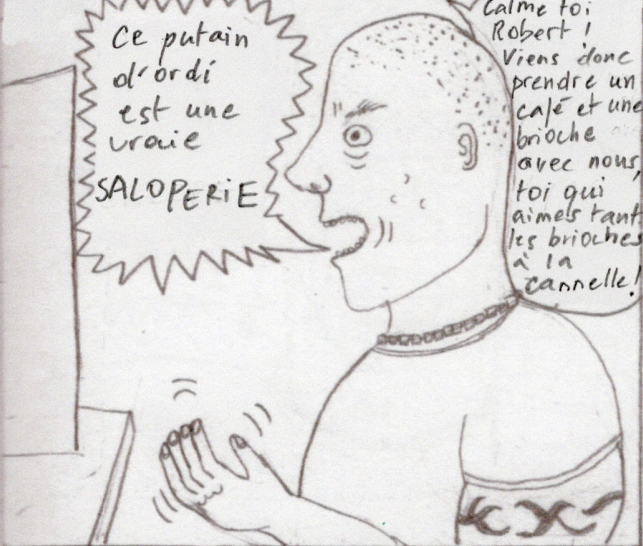 Ce putain
d'ordi
est une
vraie
SALOPERIE
Calme toi
Robert !
Viens donc
prendre un
café et une
brioche
avec nous,
toi qui
aimes tant
les brioches
à la
cannelle!